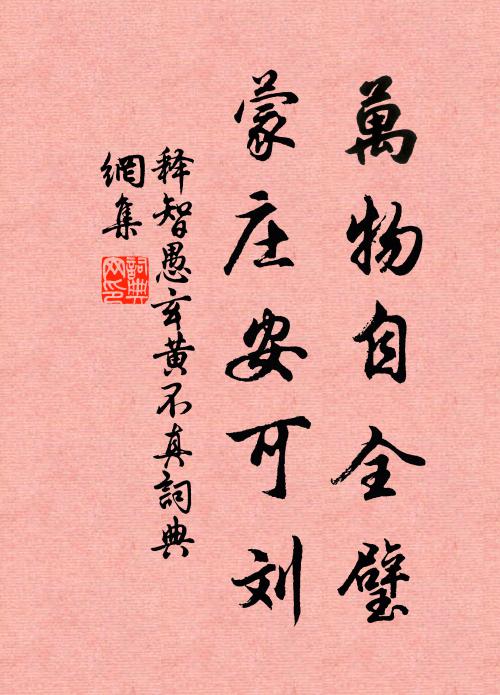 萬物自全璧
蒙庄安可刘
释智愚玄黄不真詞典
網集
詞典
网印